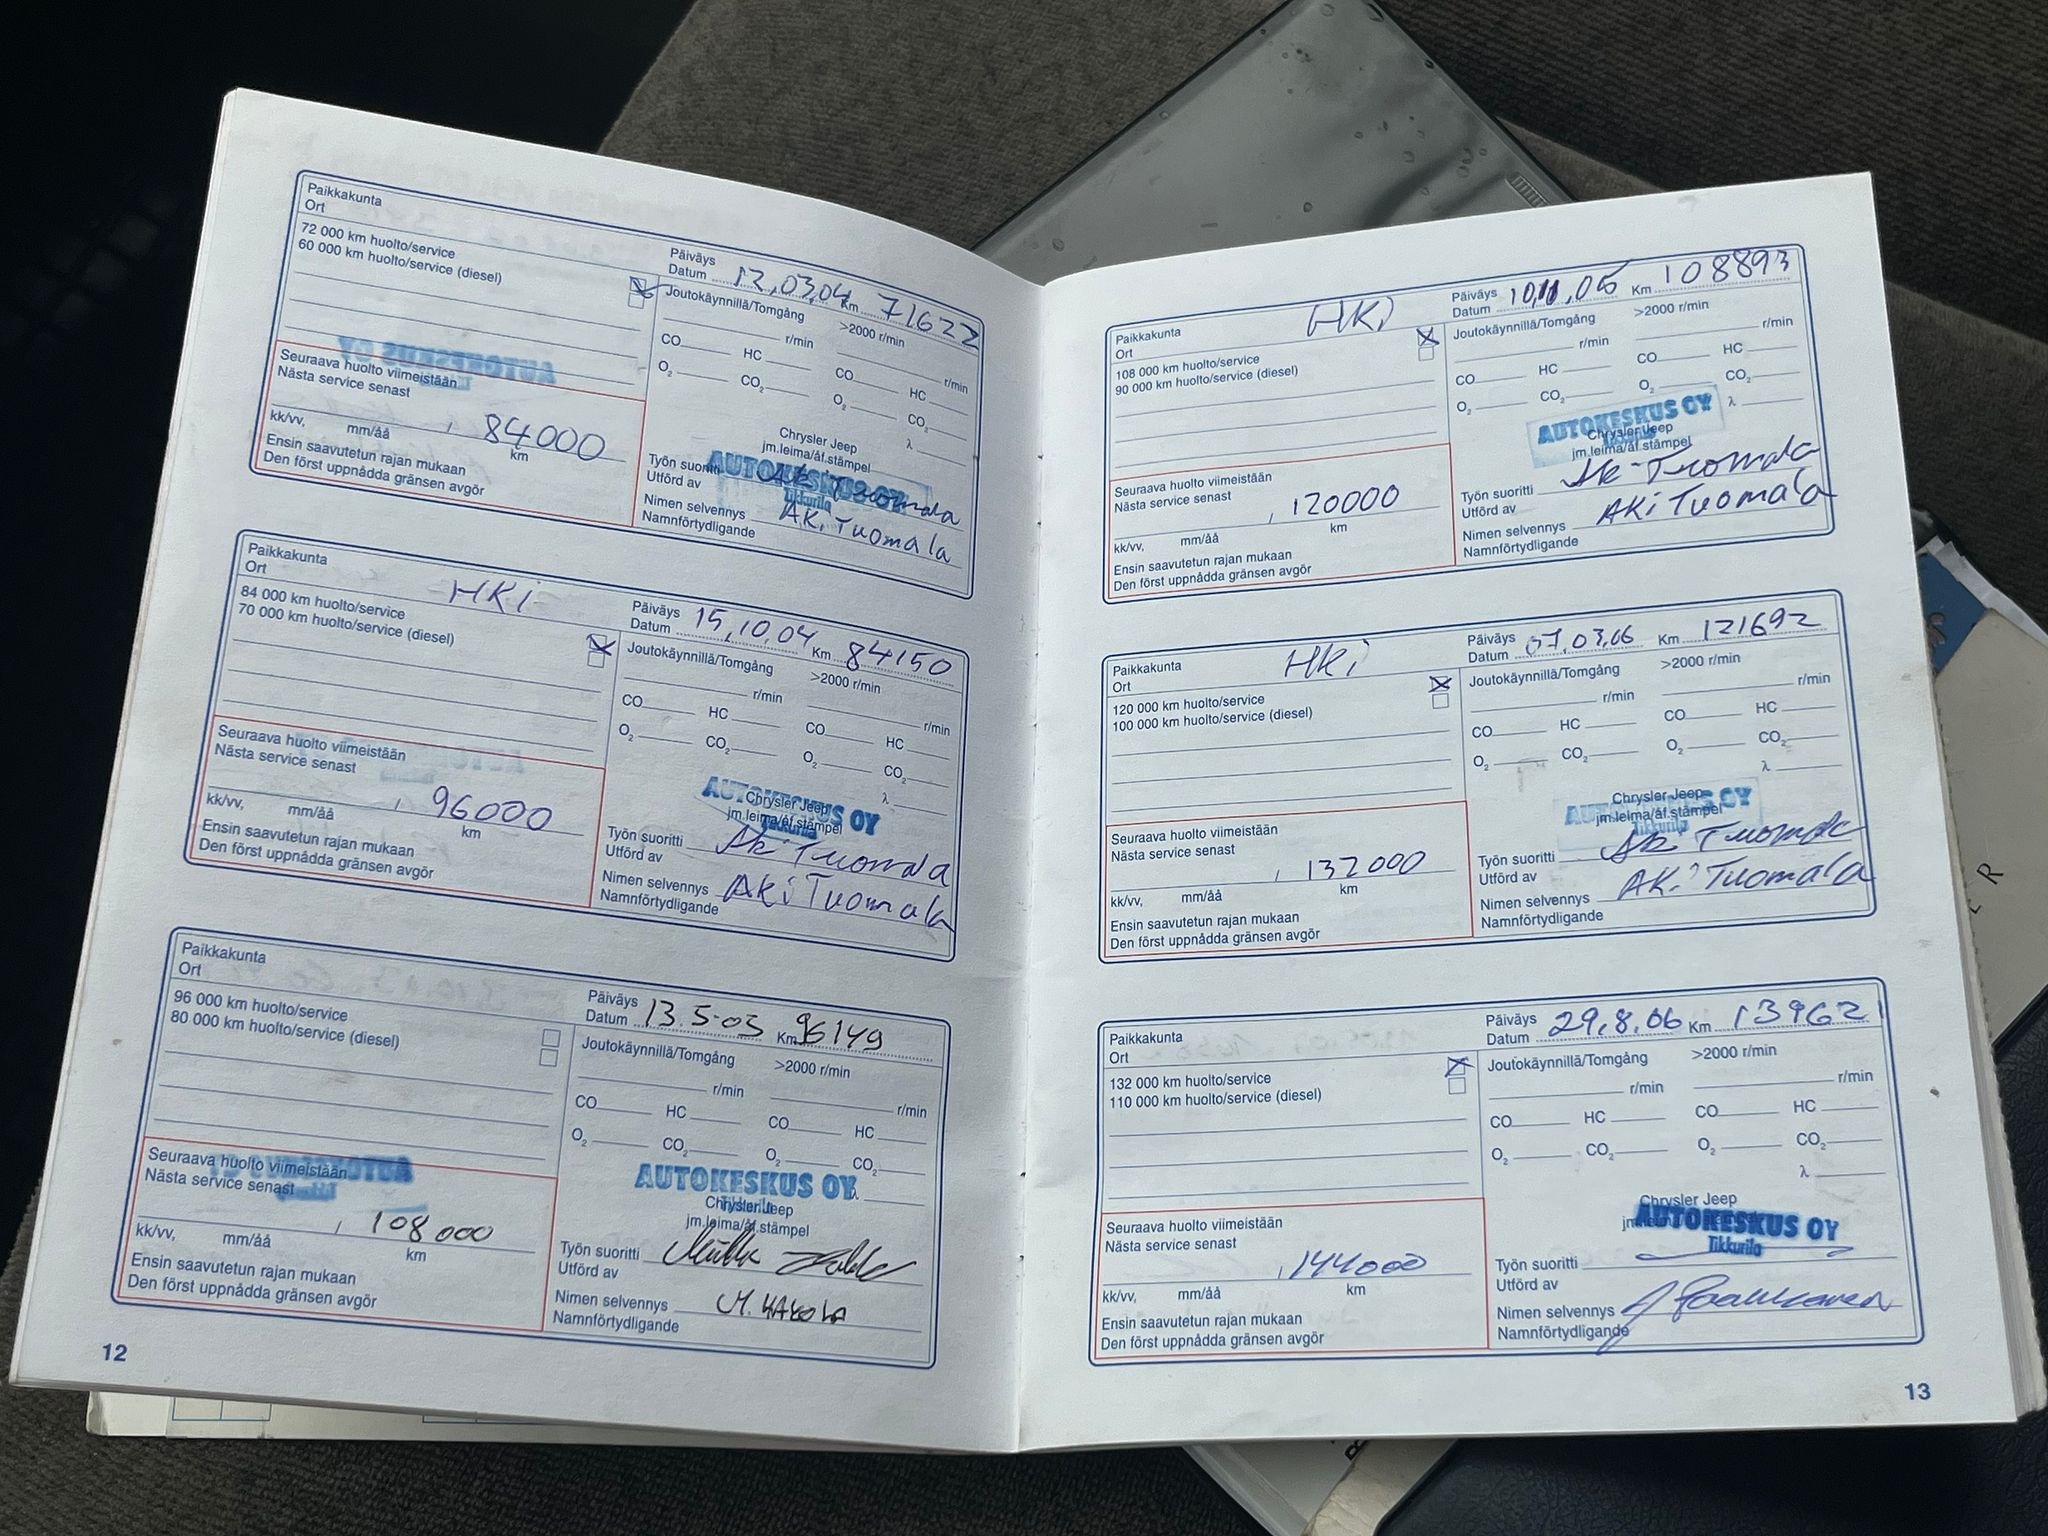 Paikkakunta
Ort
72 000 km huolto/service
60 000 km huolto/service (diesel)
Päiväys
Datum 12.03.04 Km 71622
Joutokäynnillä/Tomgång >2000 r/min
r/min r/min
CO HC CO HC
O2 CO2 O2 CO2
λ
Seuraava huolto viimeistään
Nästa service senast
, 84000
kk/vv, mm/åå km
Ensin saavutetun rajan mukaan
Den först uppnådda gränsen avgör
Chrysler Jeep
jm.leima/åf.stämpel
AUTOKESKUS OY
Tikkurila
Työn suoritti Aki Tuomala
Utförd av
Nimen selvennys AKi Tuomala
Namnförtydligande
Paikkakunta
Ort HKi
84 000 km huolto/service
70 000 km huolto/service (diesel)
Päiväys
Datum 15.10.04 Km 84150
Joutokäynnillä/Tomgång >2000 r/min
r/min r/min
CO HC CO HC
O2 CO2 O2 CO2
λ
Seuraava huolto viimeistään
Nästa service senast
, 96000
kk/vv, mm/åå km
Ensin saavutetun rajan mukaan
Den först uppnådda gränsen avgör
AUTOKESKUS OY
Chrysler Jeep
jm.leima/åf.stämpel
Tikkurila
Työn suoritti Aki Tuomala
Utförd av
Nimen selvennys AKi Tuomala
Namnförtydligande
Paikkakunta
Ort
96 000 km huolto/service
80 000 km huolto/service (diesel)
Päiväys
Datum 13.5-05 Km 96149
Joutokäynnillä/Tomgång >2000 r/min
r/min r/min
CO HC CO HC
O2 CO2 O2 CO2
λ
Seuraava huolto viimeistään
Nästa service senast
, 108 000
kk/vv, mm/åå km
Ensin saavutetun rajan mukaan
Den först uppnådda gränsen avgör
AUTOKESKUS OY
Tikkurila
Chrysler Jeep
jm.leima/åf.stämpel
Työn suoritti
Utförd av
Nimen selvennys M. KAKOLA
Namnförtydligande
12
Paikkakunta
Ort HKi
108 000 km huolto/service
90 000 km huolto/service (diesel)
Päiväys
Datum 10.11.05 Km 108893
Joutokäynnillä/Tomgång >2000 r/min
r/min r/min
CO HC CO HC
O2 CO2 O2 CO2
λ
Seuraava huolto viimeistään
Nästa service senast
, 120000
kk/vv, mm/åå km
Ensin saavutetun rajan mukaan
Den först uppnådda gränsen avgör
AUTOKESKUS OY
Chrysler Jeep
jm.leima/åf.stämpel
Työn suoritti Aki Tuomala
Utförd av
Nimen selvennys AKi Tuomala
Namnförtydligande
Paikkakunta
Ort HKi
120 000 km huolto/service
100 000 km huolto/service (diesel)
Päiväys
Datum 07.03.06 Km 121692
Joutokäynnillä/Tomgång >2000 r/min
r/min r/min
CO HC CO HC
O2 CO2 O2 CO2
λ
Seuraava huolto viimeistään
Nästa service senast
, 132000
kk/vv, mm/åå km
Ensin saavutetun rajan mukaan
Den först uppnådda gränsen avgör
Chrysler Jeep
AUTOKESKUS OY
jm.leima/åf.stämpel
Tikkurila
Työn suoritti Aki Tuomala
Utförd av
Nimen selvennys AKi Tuomala
Namnförtydligande
Paikkakunta
Ort
132 000 km huolto/service
110 000 km huolto/service (diesel)
Päiväys
Datum 29.8.06 Km 139621
Joutokäynnillä/Tomgång >2000 r/min
r/min r/min
CO HC CO HC
O2 CO2 O2 CO2
λ
Seuraava huolto viimeistään
Nästa service senast
, 144000
kk/vv, mm/åå km
Ensin saavutetun rajan mukaan
Den först uppnådda gränsen avgör
Chrysler Jeep
AUTOKESKUS OY
Tikkurila
Työn suoritti
Utförd av
Nimen selvennys
Namnförtydligande
13